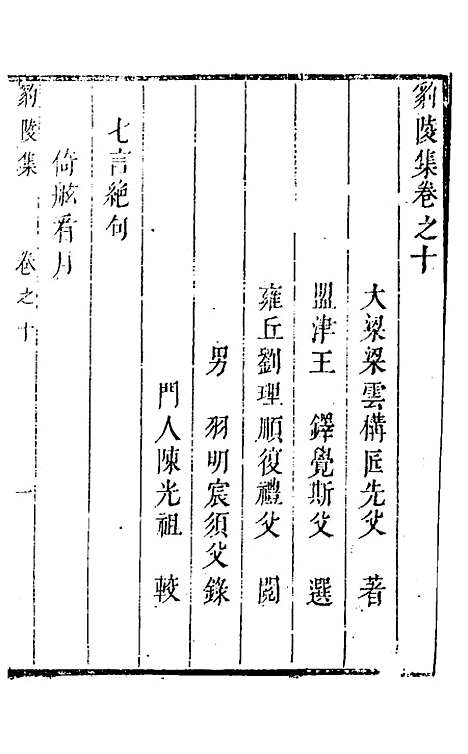 豹陵集卷之十
大梁梁雲構匠先父 著
盟津王 鐸覺斯父 選
雍丘劉理順復禮父 閱
男 羽明宸須父 錄
門人陳光祖 較
七言絕句
倚舷看月
豹陵集 卷之十 一